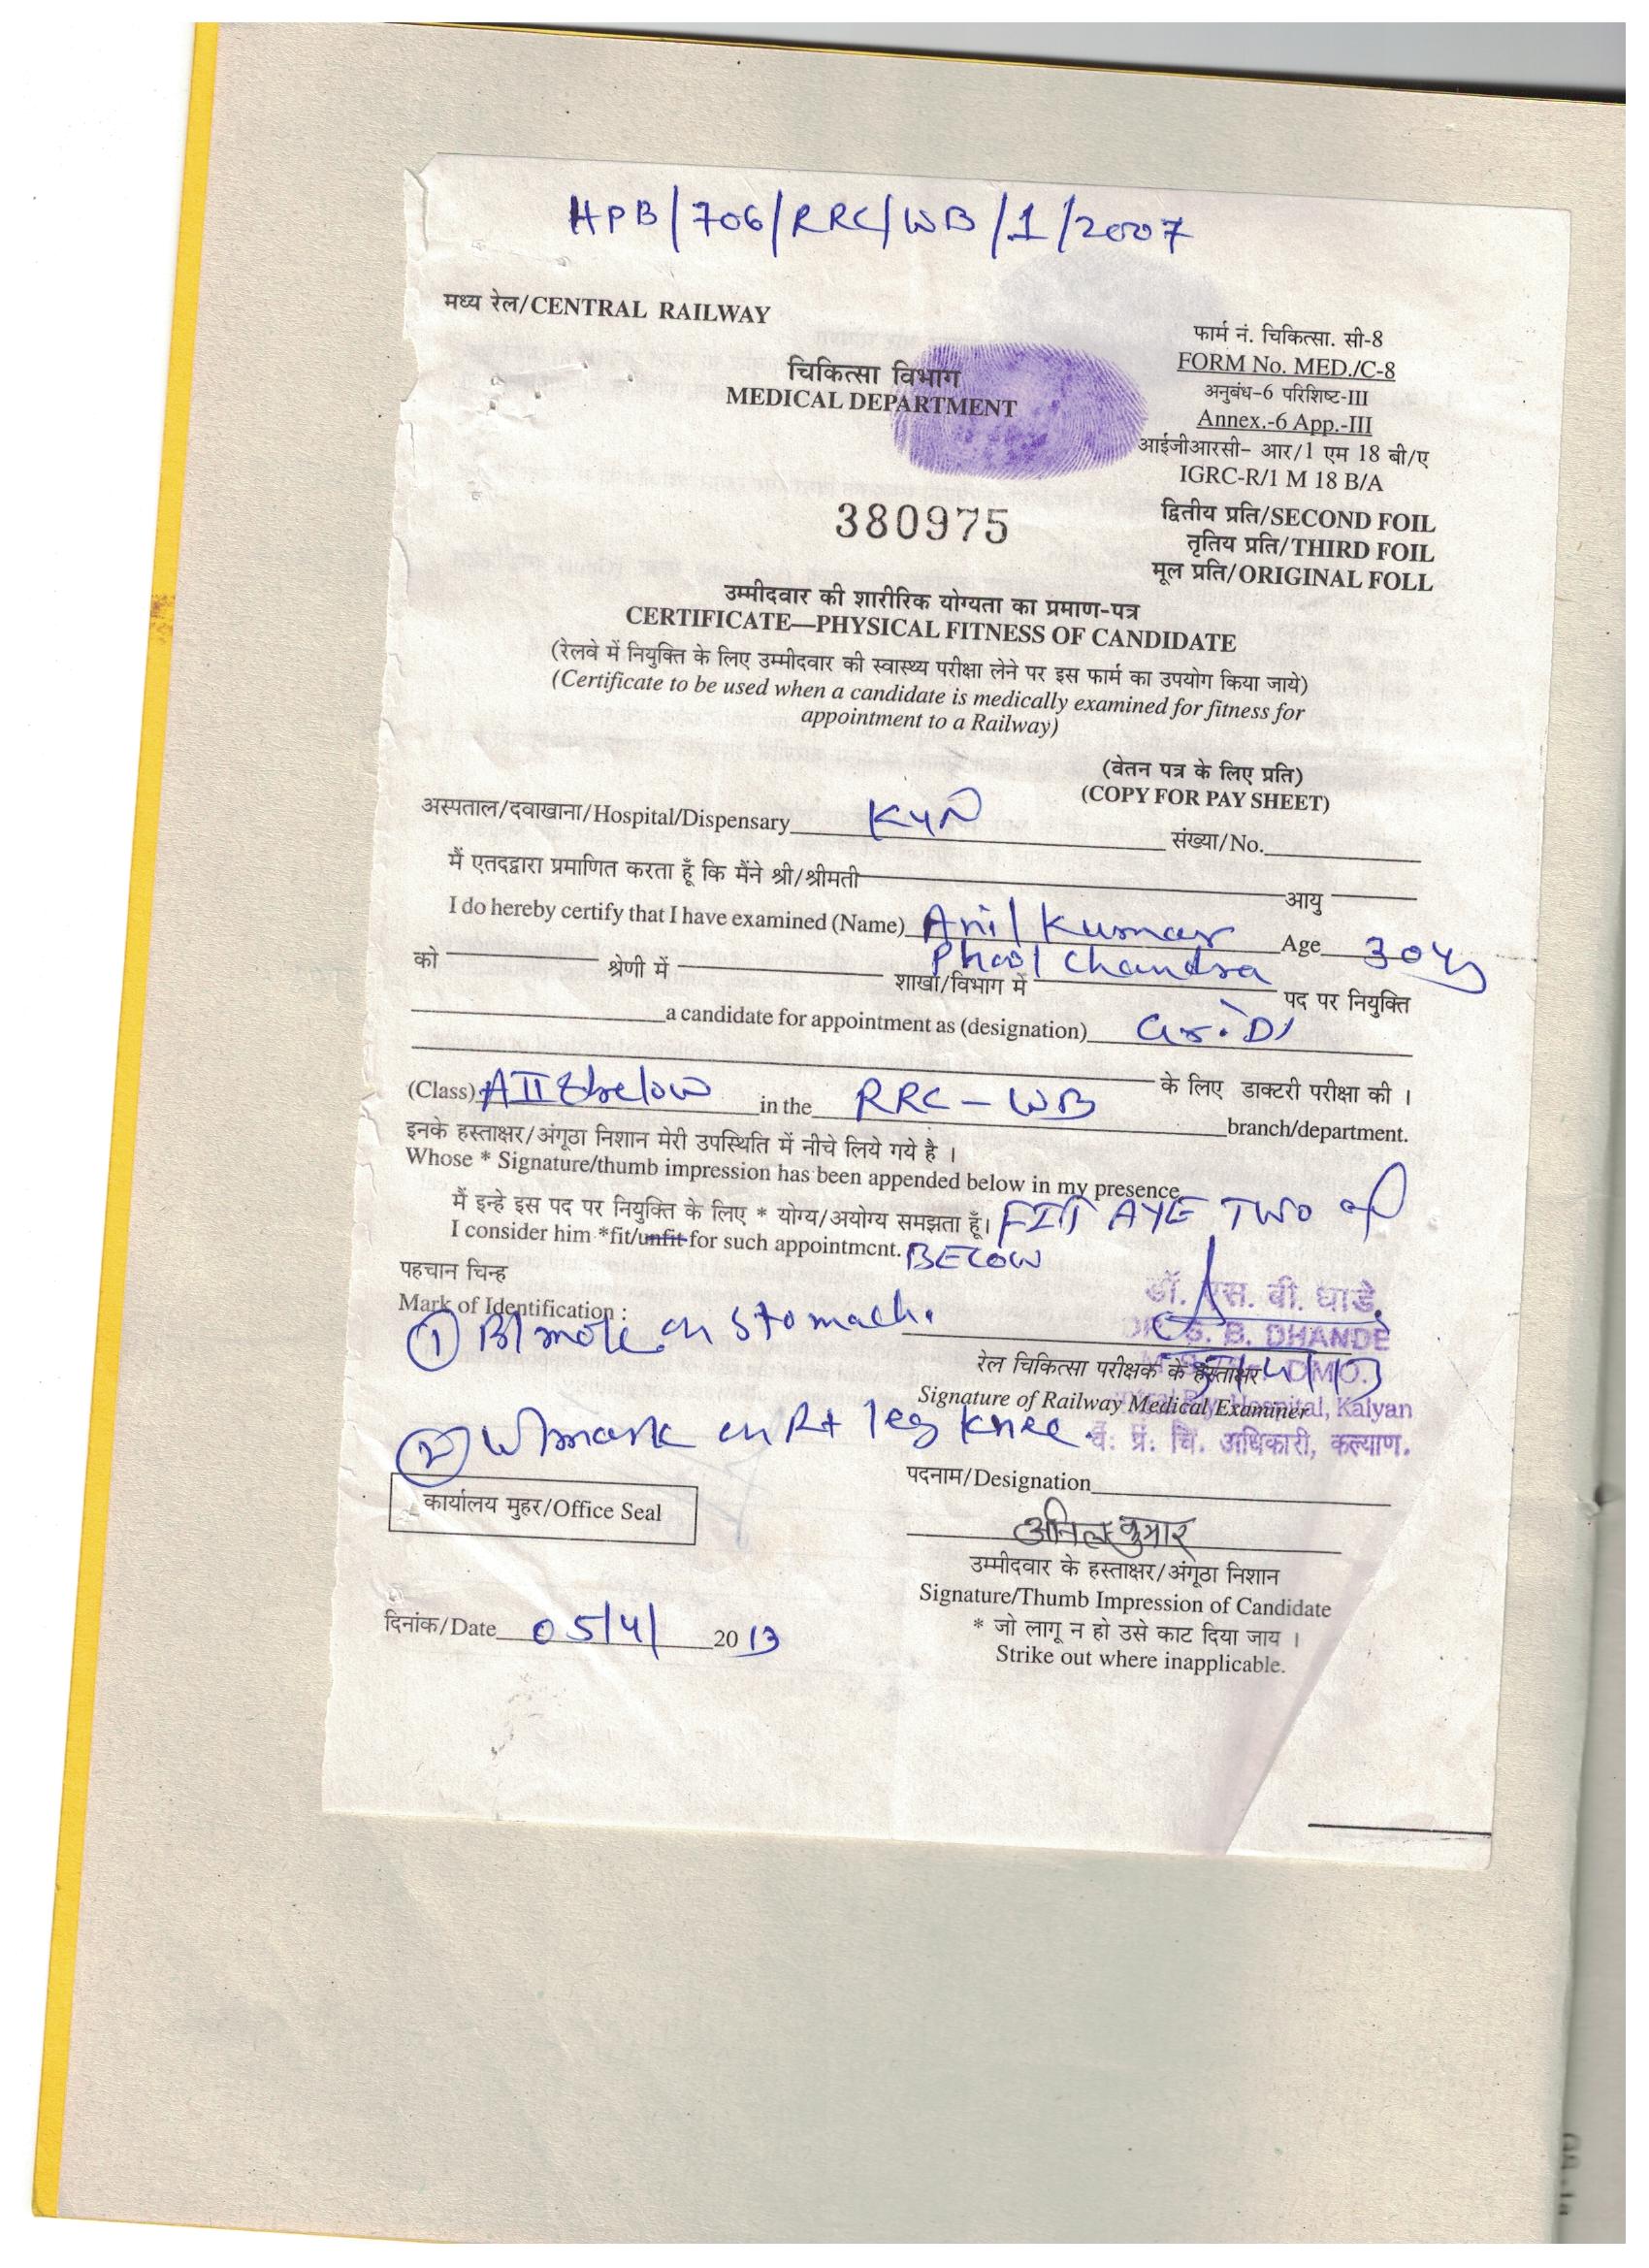 HPB/706/RRC/WB/1/2007
मध्य रेल/CENTRAL RAILWAY
फार्म नं. चिकित्सा. सी-8
FORM No. MED./C-8
अनुबंध-6 परिशिष्ट-III
Annex.-6 App.-III
आईजीआरसी- आर/1 एम 18 बी/ए
IGRC-R/1 M 18 B/A
चिकित्सा विभाग
MEDICAL DEPARTMENT
380975
द्वितीय प्रति/SECOND FOIL
तृतिय प्रति/THIRD FOIL
मूल प्रति/ORIGINAL FOLL
उम्मीदवार की शारीरिक योग्यता का प्रमाण-पत्र
CERTIFICATE—PHYSICAL FITNESS OF CANDIDATE
(रेलवे में नियुक्ति के लिए उम्मीदवार की स्वास्थ्य परीक्षा लेने पर इस फार्म का उपयोग किया जाये)
(Certificate to be used when a candidate is medically examined for fitness for
appointment to a Railway)
(वेतन पत्र के लिए प्रति)
(COPY FOR PAY SHEET)
अस्पताल/दवाखाना/Hospital/Dispensary KYN संख्या/No.
मैं एतदद्वारा प्रमाणित करता हूँ कि मैंने श्री/श्रीमती आयु
I do hereby certify that I have examined (Name) Anil Kumar Age 30 yrs
Phool Chandra
को श्रेणी में शाखा/विभाग में पद पर नियुक्ति
a candidate for appointment as (designation) Gr. 'D'
के लिए डाक्टरी परीक्षा की ।
(Class) A II & below in the RRC - WB branch/department.
इनके हस्ताक्षर/अंगूठा निशान मेरी उपस्थिति में नीचे लिये गये है ।
Whose * Signature/thumb impression has been appended below in my presence
मैं इन्हे इस पद पर नियुक्ति के लिए * योग्य/अयोग्य समझता हूँ। FIT AYE TWO &
I consider him *fit/unfit for such appointment. BELOW
पहचान चिन्ह
Mark of Identification :
① Bl mole on stomach.
डॉ. एस. बी. धाडे
DR. S. B. DHANDE
DMO.
रेल चिकित्सा परीक्षक के हस्ताक्षर
Signature of Railway Medical Examiner
Hospital, Kalyan
② W/mark on Rt leg knee.
व. प्रं. चि. अधिकारी, कल्याण.
पदनाम/Designation
कार्यालय मुहर/Office Seal
अनिल कुमार
उम्मीदवार के हस्ताक्षर/अंगूठा निशान
Signature/Thumb Impression of Candidate
दिनांक/Date 05/4/ 2013
* जो लागू न हो उसे काट दिया जाय ।
Strike out where inapplicable.